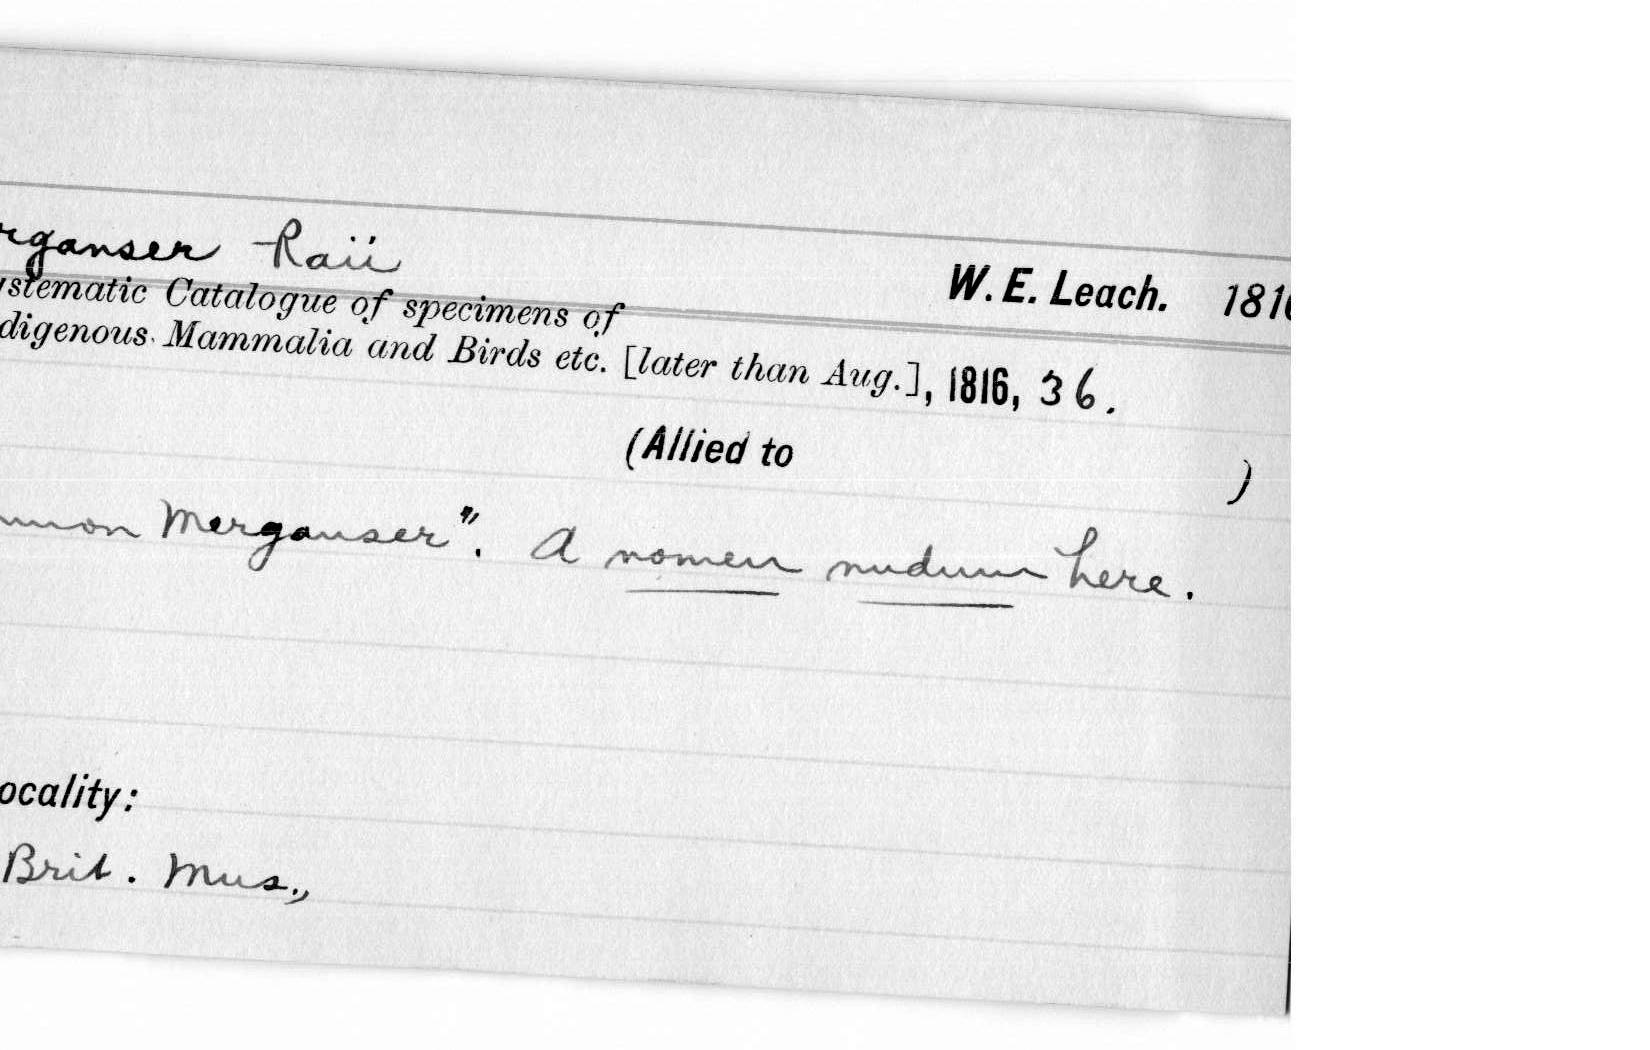 rganser Raii
W. E. Leach. 181
ystematic Catalogue of specimens of
digenous Mammalia and Birds etc. [later than Aug.], 1816, 36.
(Allied to )
mmon Merganser". A nomen nudum here.
ocality:
Brit. Mus.,